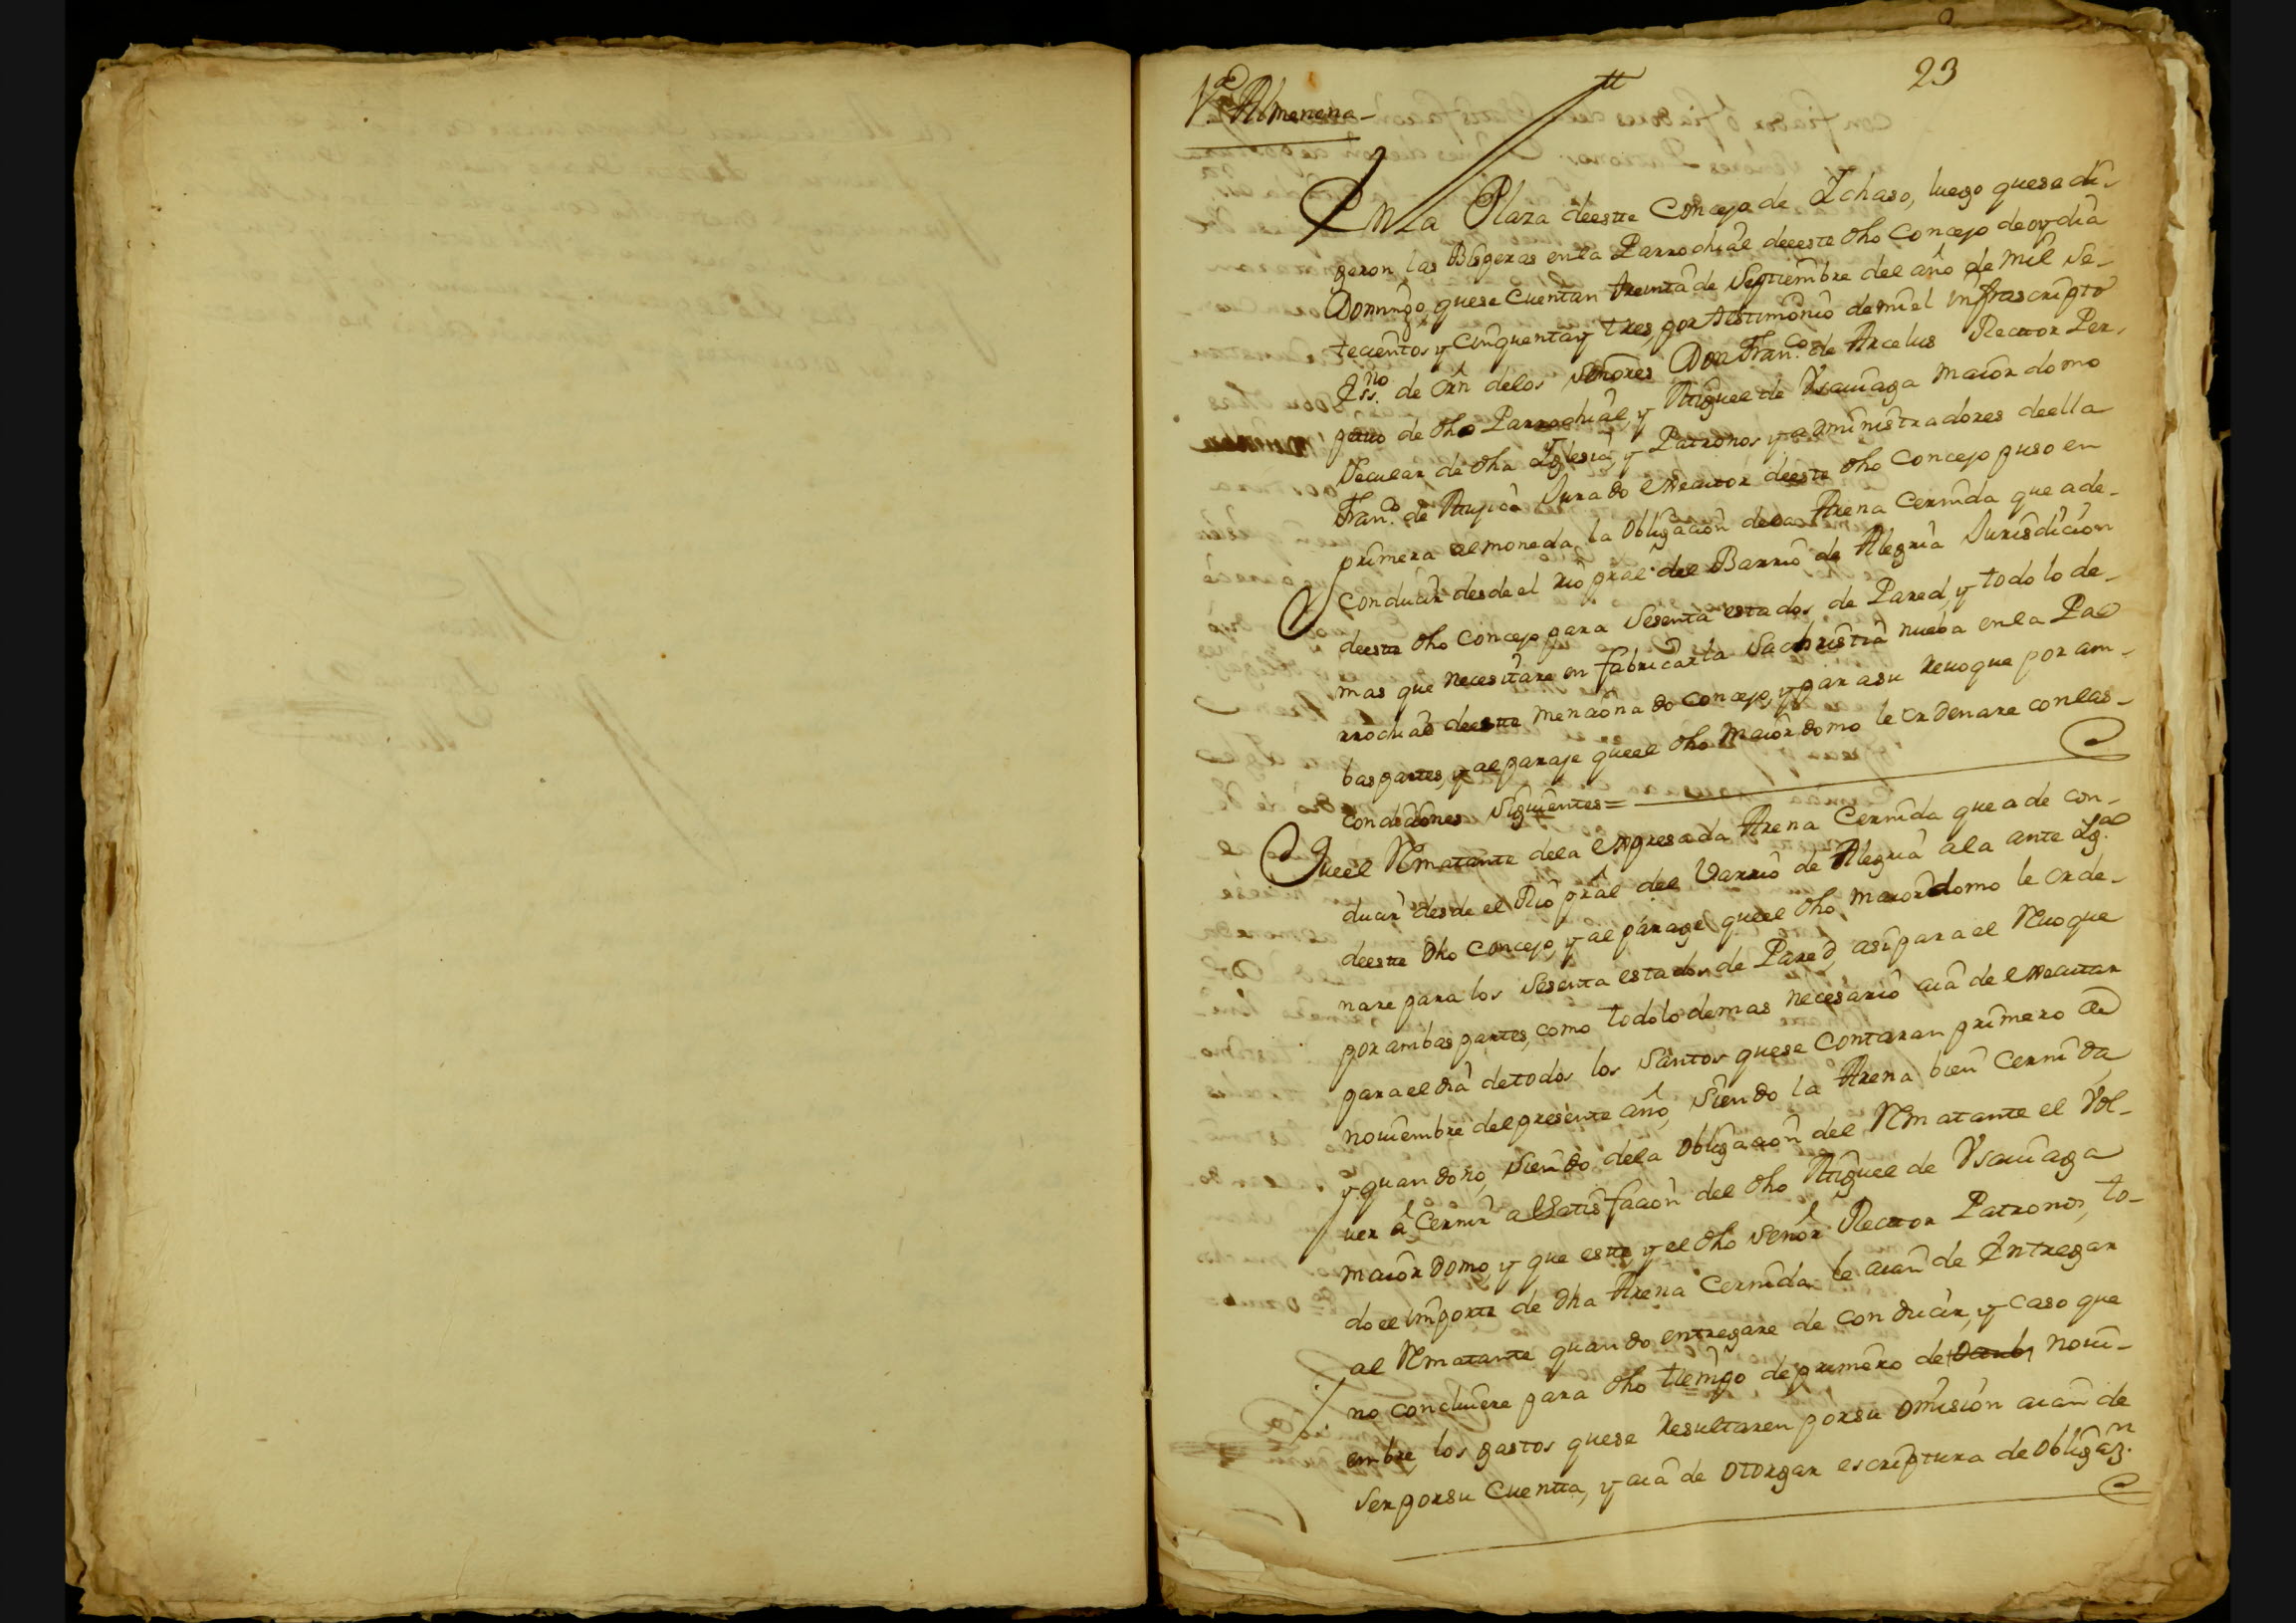 23
En La Plaza deeste Concejo de Ichaso, luego que se di-
xeron las Bisperas enla Parrochiâl deeste dho Concejo de oy dia
Domingo, que se Cuentan treinta de Septiembre del año de mil Se-
tecientos y Cinquenta y tres, por testimonio de mi el infrascripto
Ess.no de orn delos Señores Don Fran.co de Arcelus Rector Per-
petuo de dho Parrochiâl, y Miguel de Vsauiaga maiordomo
Secular de dha Yglesia, y Patronos y administradores deella
Fran.co de Jurado executor deeste dho Concejo puso en
primera almoneda, la obligacion dela Arena Cernida que a de-
conducir desde el rio prâl del Barrio de Alegria Jurisdicion
deeste dho Concejo para Sesenta estados de Pared, y todo lo de-
mas que necesitare en fabricar la Sachristia nueba en la Pa
rrochiâl deeste mencionado Concejo, y para su Reuoque por am-
bas partes, y al paraje que el dho maiordomo le ordenare con las-
condiciones Siguientes=
Que el Rematante dela expresada Arena Cernida que a de con-
ducir desde el Rio prâl del Varrio de Alegria a la ante
deeste dho Concejo, y al parage que el dho maiordomo le orde-
nare para los Sesenta estados de Pared, asi para el Reuoque
por ambas partes, como todo lo demas necesario aia de executar
para el dia de todos los Santos que se contaran primero de
nouiembre del presente año, Siendo la Arena bien Cernida,
y quando no, Siendo dela obligacion del Rematante el vol-
uer â Cernir a Satisfacion del dho Miguel de Vsauiaga
maiordomo, y que este, y el dho Señor Rector Patronos, to-
do el importe de dha Arena Cernida le aian de Entregar
al Rematante quando entregare de conducir, y caso que
no concluiere para dho tiempo de primero de noui-
embre, los gastos que se resultaren por su omision aian de
Ser por su Cuenta, y aia de otorgar escriptura de obligaz.n